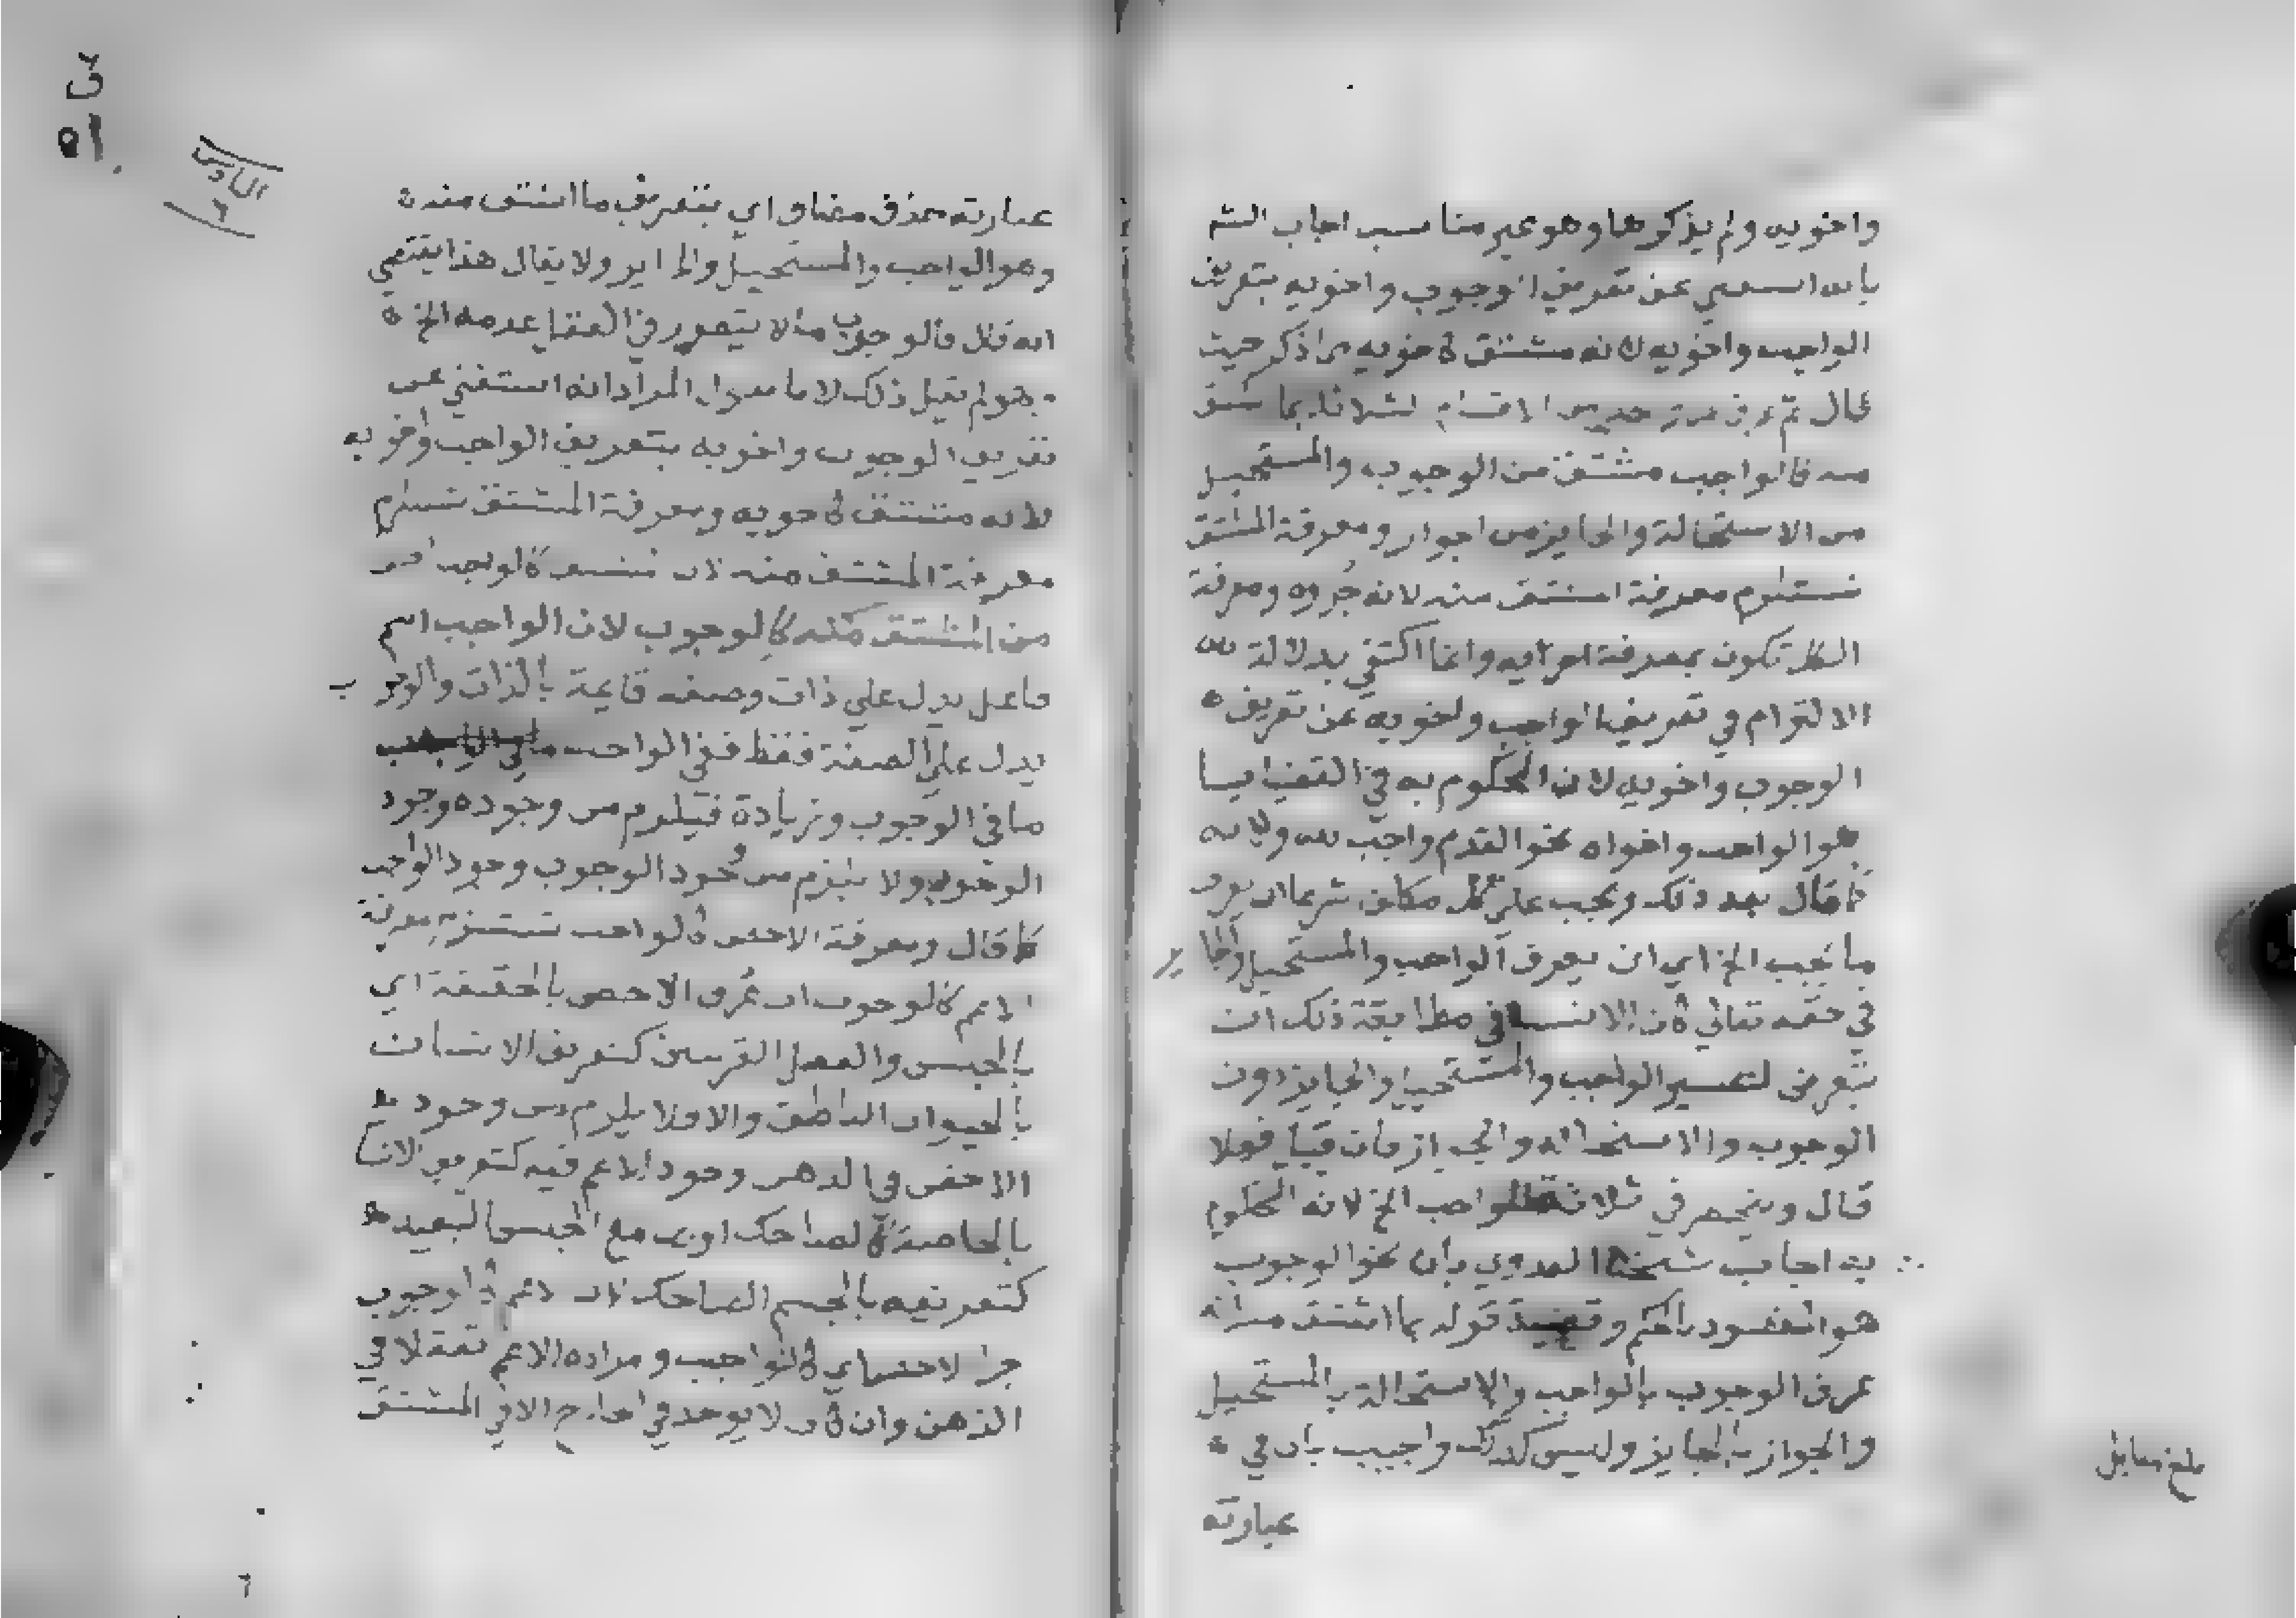 واخويه ولم يذكرها وهو غير مناسب اجاب الش
بانه استغني عن تعريف الوجوب واخويه بتعريف
الواجب واخويه لانه مشتق كاخويه مما ذكر حيث
قال ثم عرف كل واحد من الاقسام الثلاثة بما اشتق
منه فالواجب مشتق من الوجوب والمستحيل
من الاستحالة والجايز من الجواز ومعرفة المشتق
تستلزم معرفة المشتق منه لانه جزوه ومعرفة
الكل تكون بمعرفة اجزايه وانما اكتفي بدلالة
الالتزام في تعريف الواجب واخويه عن تعريف
الوجوب واخويه لان المحكوم به في القضايا
هو الواجب واخواه نحو القدم واجب لله ولانه
قال بعد ذلك ويجب علي كل مكلف شرعا ان يعرف
ما يجب الخ اي ان يعرف الواجب والمستحيل والجايز
في حقه تعالي فان الانسب في مطابقة ذلك ان
يتعرض لتفسير الواجب والمستحيل والجايز دون
الوجوب والاستحالة والجواز فان قيل فهلا
قال وينحصر في ثلاثة الواجب الخ لانه المحكوم
به اجاب شيخنا العدوي بان نحو الوجوب
هو المقصود بالحكم وقضية قوله بما اشتق منه انه
عرف الوجوب بالواجب والاستحالة بالمستحيل
والجواز بالجايز وليس كذلك واجيب بان في
عبارته
بلغ مقابلة
عبارته حذف مضاف اي بتعريف ما اشتق منه
وهو الواجب والمستحيل والجايز ولا يقال هذا يقتضي
انه قال فالوجوب ما لا يتصور في العقل عدمه الخ
وهو لم يقل ذلك لانا نقول المراد انه استغني عن
تعريف الوجوب واخويه بتعريف الواجب واخويه
لانه مشتق كاخويه ومعرفة المشتق تستلزم
معرفة المشتق منه لان المشتق كالواجب اخص
من المشتق منه كالوجوب لان الواجب اسم
فاعل يدل علي ذات وصفة قايمة بالذات والوجوب
يدل علي الصفة فقط ففي الواجب
ما في الوجوب وزيادة فيلزم من وجوده وجود
الوجوب ولا يلزم من وجود الوجوب وجود الواجب
قال ومعرفة الاخص كالواجب تستلزم معرفة
الاعم كالوجوب ان عرف الاخص بالحقيقة اي
بالجنس والفصل القريبين كتعريف الانسان
بالحيوان الناطق والا فلا يلزم من وجود
الاخص في الذهن وجود الاعم فيه كتعريف الانسان
بالخاصة كالضاحك او بها مع الجنس البعيد
كتعريفه بالجسم الضاحك لان الاعم كالوجوب
جزء الاخص اي كالواجب ومراده الاعم تعقلا في
الذهن وان كان لا يوجد في الخارج الا في المشتق